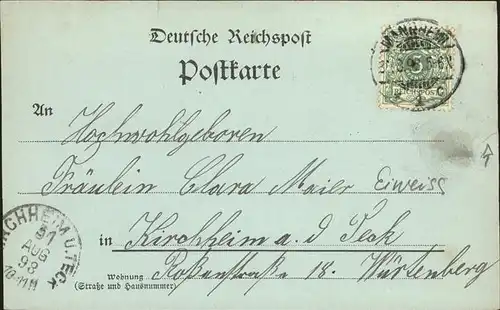 Deutsche Reichspost
Postkarte
MANNHEIM
REICHSPOST
An Hochwohlgeboren
Fräulein Clara Maier Eiweiss
in Kirchheim a. d Teck
Roßenstraße 18. Würtenberg
Wohnung
(Straße und Hausnummer)
KIRCHHEIM U. TECK
31
AUG
98